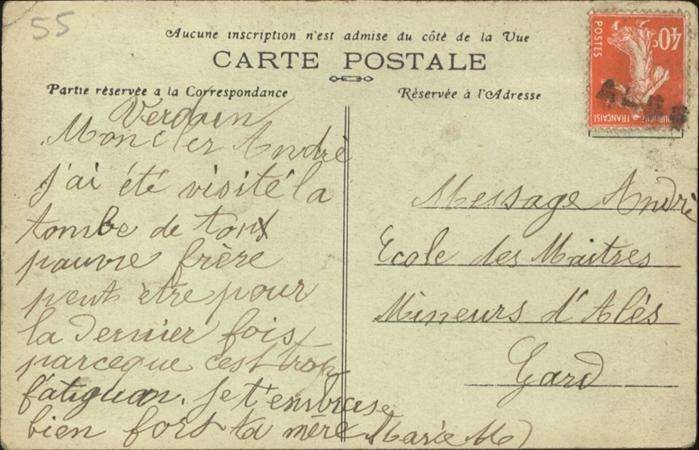 55
Aucune inscription n'est admise du côté de la Vue
CARTE POSTALE
Partie réservée a la Correspondance
Réservée à l'Adresse
40c
POSTES
FRANÇAISE
Verdun
Mon cher André
J'ai été visité la
tombe de ton
pauvre frère
peut etre pour
la dernier fois
parceque c'est trop
fatiguan. Je t'embrase
bien fort ta mère Marie M
Message André
Ecole des Maitres
Mineurs d'Alés
Gard